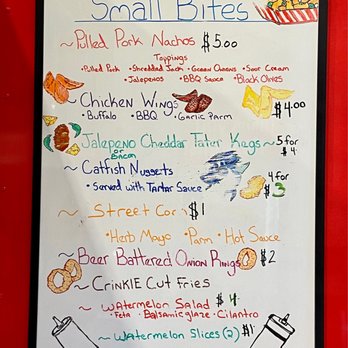 Small Bites
~ Pulled Pork Nachos $5.00
Toppings
• Pulled Pork • Shredded Jack • Green Onions • Sour Cream
• Jalapenos • BBQ Sauce • Black Olives
~ Chicken Wings ~ $4.00
• Buffalo • BBQ • Garlic Parm
~ Jalapeno Cheddar Tater Kegs ~ 5 for $4
or Bacon
~ Catfish Nuggets 4 for $3
• Served with Tartar Sauce
~ Street Corn $1
• Herb Mayo • Parm • Hot Sauce
~ Beer Battered Onion Rings $2
~ Crinkle Cut Fries
~ Watermelon Salad $4
• Feta • Balsamic glaze • Cilantro
~ Watermelon Slices (2) $1